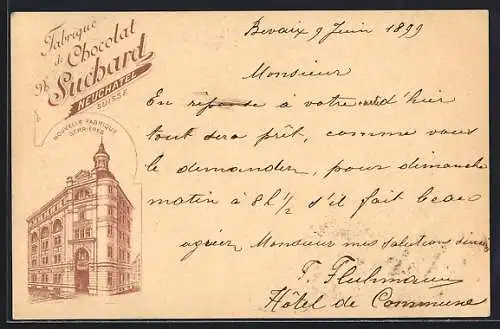 Fabrique
de Chocolat
Ph. Suchard
NEUCHATEL
SUISSE
NOUVELLE FABRIQUE
SERRIERES
Bevaix 9 Juin 1899
Monsieur
En réponse à votre d'hier
tout sera prêt, comme vous
le demandez, pour dimanche
matin à 8h ½ s'il fait beau
agréer Monsieur mes salutations
F. Fluhmann
Hôtel de Commune